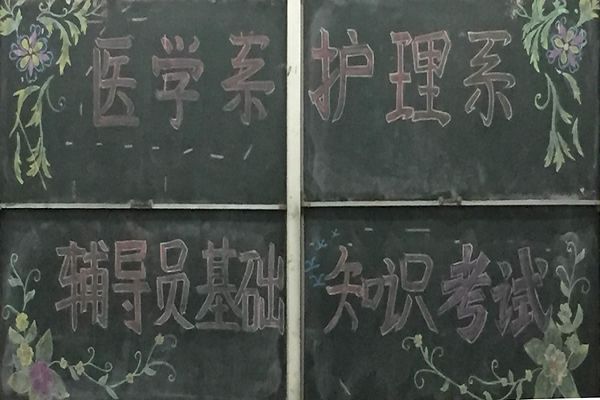 医学系 护理系
辅导员基础知识考试